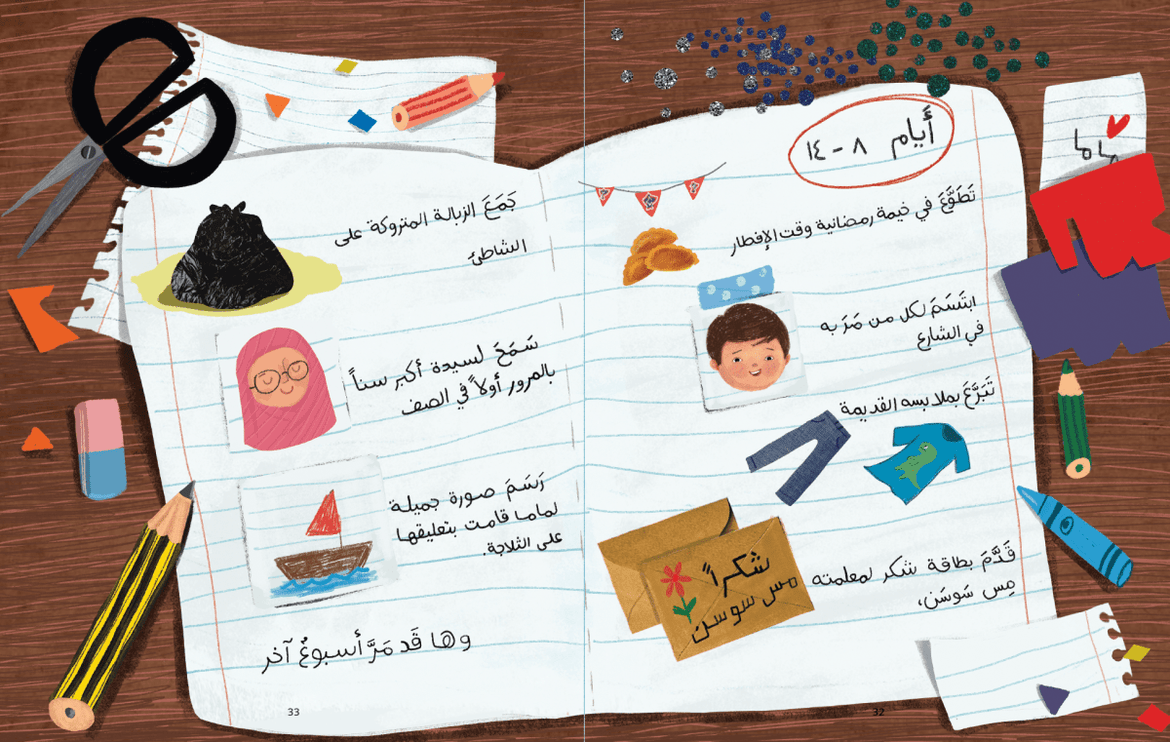 أَيام ٨ - ١٤
ماما
تَطَوَّعَ في خيمة رمضانية وقت الإفطار
ابتَسَمَ لكل من مَرَ به
في الشارع
تَبَرَّعَ بملابسه القديمة
قَدَّمَ بطاقة شكر لمعلمته
مِس سَوسَن،
شكراً
مس سوسن
32
جَمَعَ الزبالة المتروكة على
الشاطئ
سَمَحَ لسيدة أكبر سناً
بالمرور أولاً في الصف
رَسَمَ صورة جميلة
لماما قامت بتعليقها
على الثلاجة.
وها قَد مَرَّ أسبوعٌ آخر
33